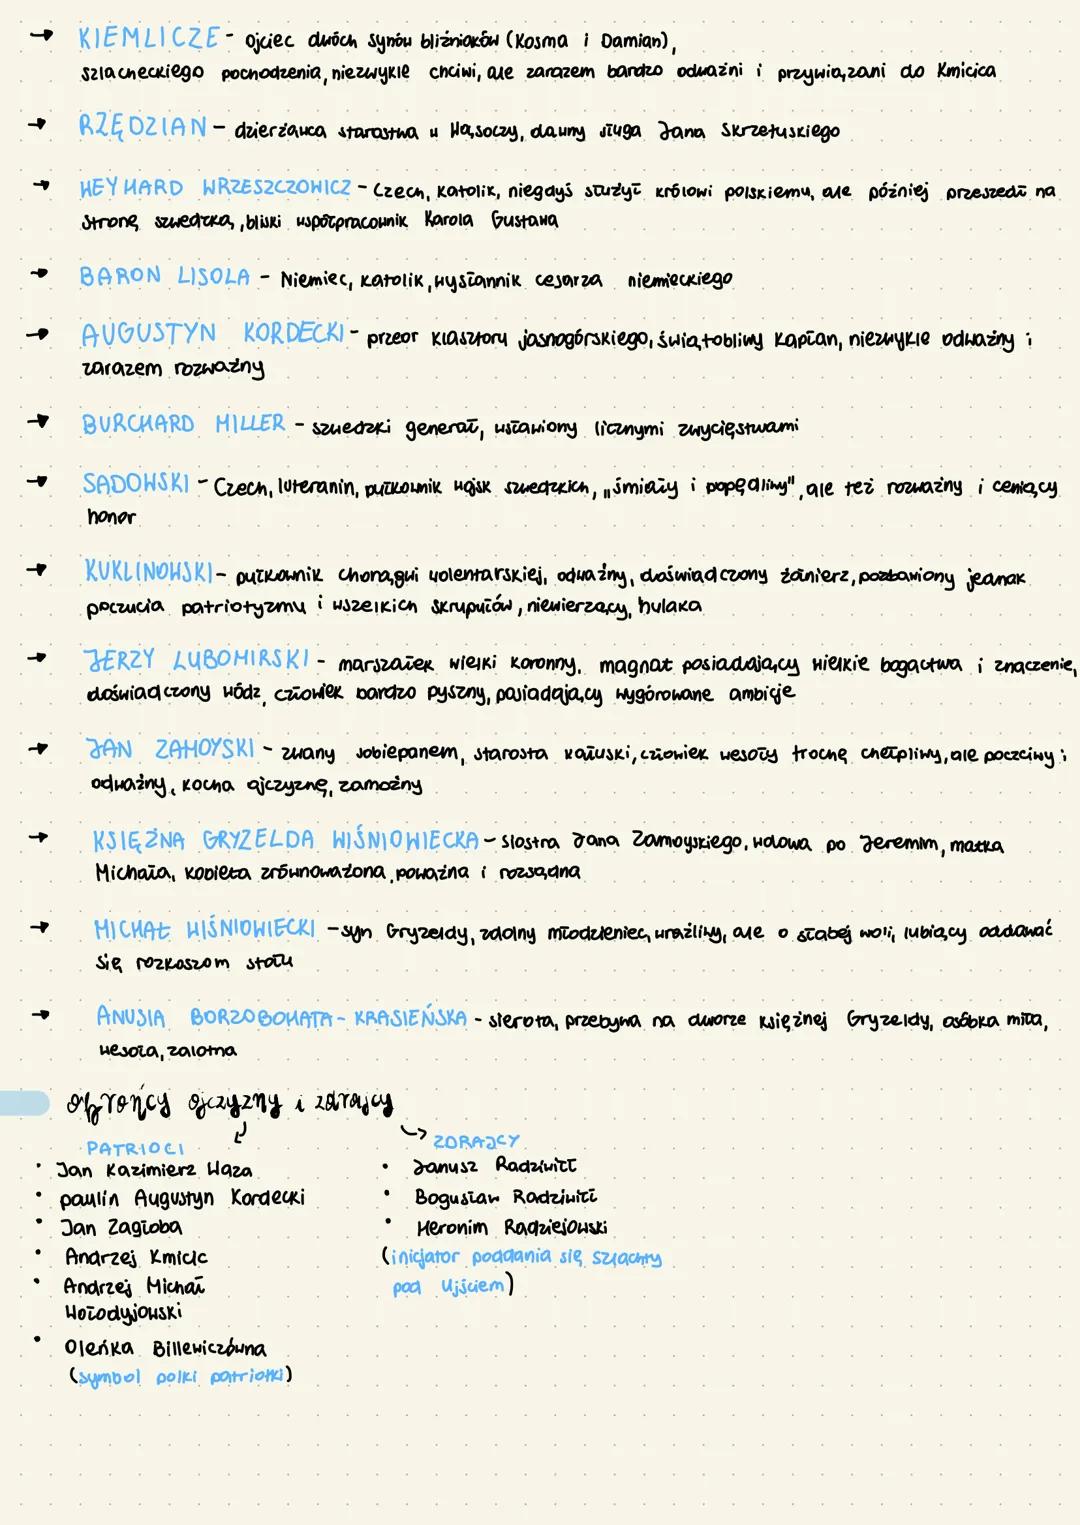 → KIEMLICZE - ojciec dwóch synów bliźniaków (Kosma i Damian),
szlacheckiego pochodzenia, niezwykle chciwi, ale zarazem bardzo odważni i przywiązani do Kmicica
→ RZĘDZIAN - dzierżawca starostwa w Wąsoczy, dawny sługa Jana Skrzetuskiego
→ WEYHARD WRZESZCZOWICZ - Czech, katolik, niegdyś służył królowi polskiemu, ale później przeszedł na
stronę szwedzką, bliski współpracownik Karola Gustawa
→ BARON LISOLA - Niemiec, katolik, wysłannik cesarza niemieckiego
→ AUGUSTYN KORDECKI - przeor klasztoru jasnogórskiego, świątobliwy kapłan, niezwykle odważny i
zarazem rozważny
→ BURCHARD MILLER - szwedzki generał, wsławiony licznymi zwycięstwami
→ SADOWSKI - Czech, luteranin, pułkownik wojsk szwedzkich, „śmiały i popędliwy", ale też rozważny i ceniący
honor
→ KUKLINOWSKI - pułkownik chorągwi wolentarskiej, odważny, doświadczony żołnierz, pozbawiony jednak
poczucia patriotyzmu i wszelkich skrupułów, niewierzący, hulaka
→ JERZY LUBOMIRSKI - marszałek wielki koronny, magnat posiadający wielkie bogactwa i znaczenie,
doświadczony wódz, człowiek bardzo pyszny, posiadający wygórowane ambicje
→ JAN ZAMOYSKI - zwany sobiepanem, starosta kałuski, człowiek wesoły trochę chełpliwy, ale poczciwy i
odważny, kocha ojczyznę, zamożny
→ KSIĘŻNA GRYZELDA WIŚNIOWIECKA - siostra Jana Zamoyskiego, wdowa po Jeremim, matka
Michała, kobieta zrównoważona, poważna i rozsądna
→ MICHAŁ WIŚNIOWIECKI - syn Gryzeldy, zdolny młodzieniec, wrażliwy, ale o słabej woli, lubiący oddawać
się rozkoszom stołu
→ ANUSIA BORZOBOHATA - KRASIEŃSKA - sierota, przebywa na dworze księżnej Gryzeldy, osóbka miła,
wesoła, zalotna
obrońcy ojczyzny i zdrajcy
PATRIOCI
• Jan Kazimierz Waza
• paulin Augustyn Kordecki
• Jan Zagłoba
• Andrzej Kmicic
• Andrzej Michał
Wołodyjowski
• Oleńka Billewiczówna
(symbol polki patriotki)
ZDRAJCY
• Janusz Radziwiłł
• Bogusław Radziwiłł
• Heronim Radziejowski
(inicjator poddania się szlachty
pod Ujściem)